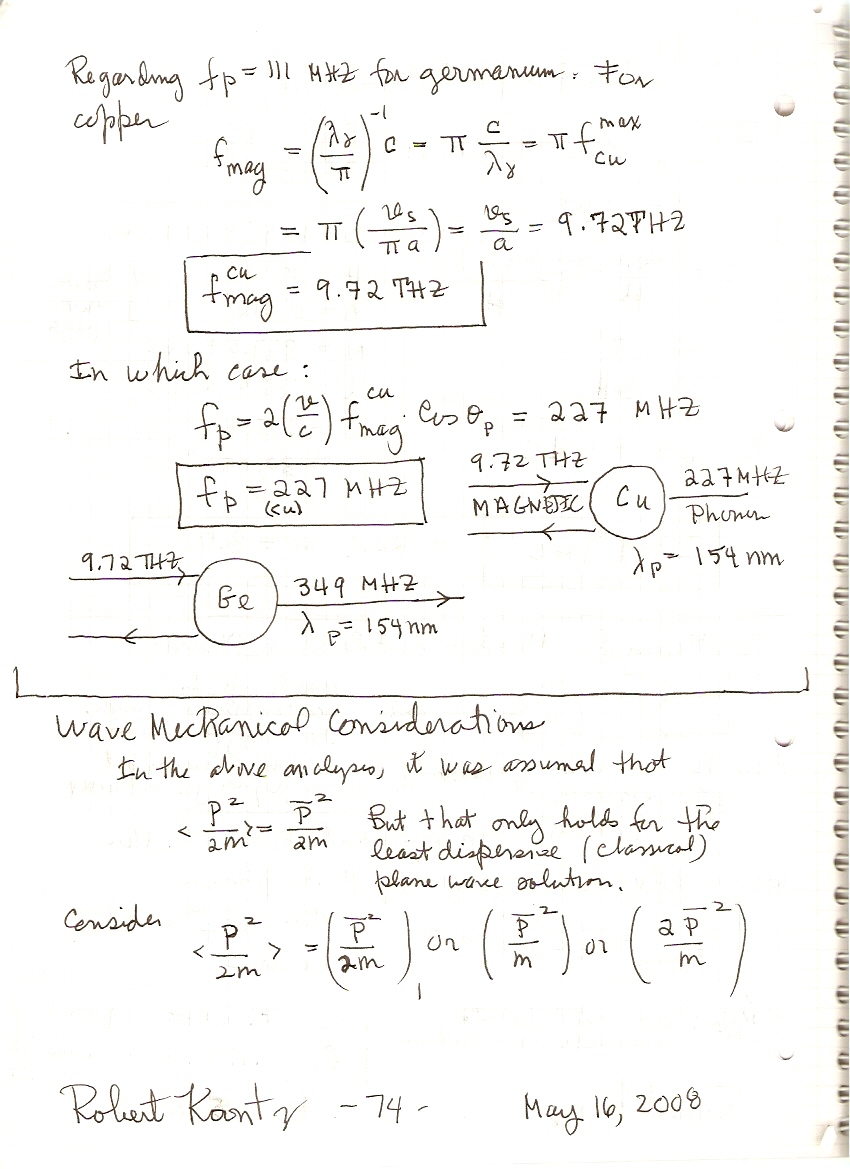 Regarding fp = 111 MHZ for germanium. For
copper
f mag = (λγ/π)^-1 c = π c/λγ = π f cu max
= π (vs/πa) = vs/a = 9.72 THZ
f mag cu = 9.72 THZ
In which case :
fp = 2(v/c) f mag cu · Cos θp = 227 MHZ
fp (cu) = 227 MHZ
9.72 THZ
MAGNETIC
Cu
227 MHZ
Phonon
λp = 154 nm
9.72 THZ
Ge
349 MHZ
λp = 154 nm
Wave Mechanical Considerations
In the above analyses, it was assumed that
<P²/2m> = P̅²/2m But that only holds for the
least dispersive (classical)
plane wave solution.
Consider
<P²/2m> = (P̅²/2m) or (P̅²/m) or (2P̅²/m)
Robert Kantz - 74 - May 16, 2008